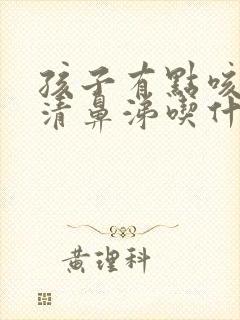 孩子有點咳
清鼻涕喫什
黃理科